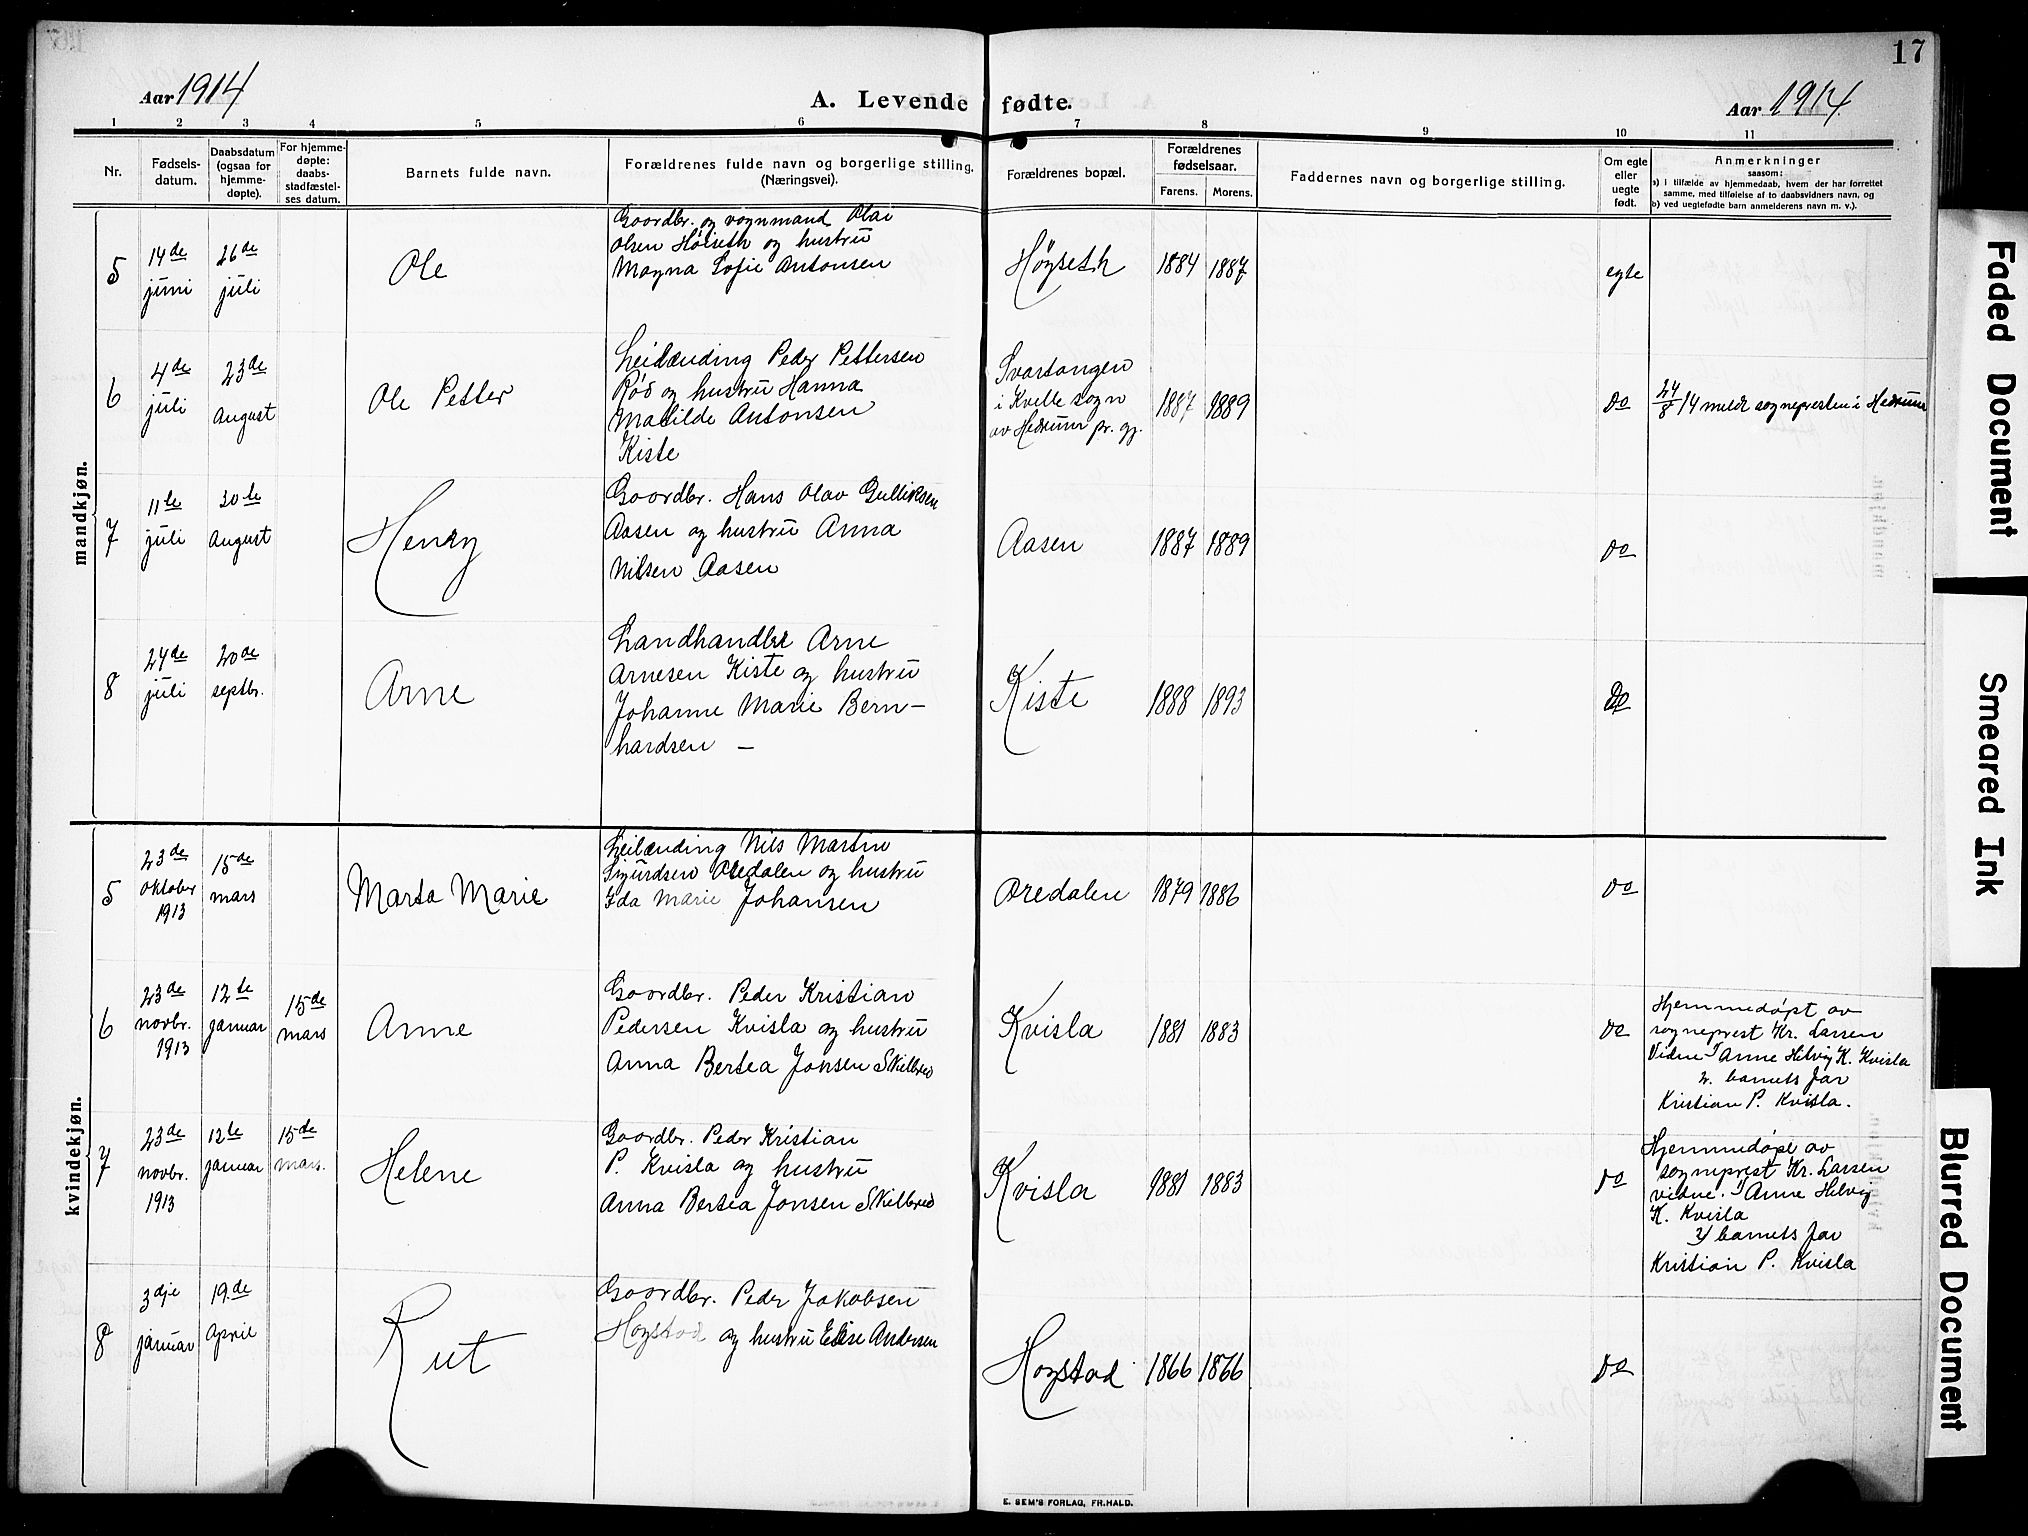 17
Aar 1914
A. Levende fødte.
Aar 1914.
1 2 3 4 5 6 7 8 9 10 11
Nr.
Fødsels-
datum.
Daabsdatum
(ogsaa for
hjemme-
døpte).
For hjemme-
døpte:
daabs-
stadfæstel-
ses datum.
Barnets fulde navn.
Forældrenes fulde navn og borgerlige stilling.
(Næringsvei).
Forældrenes bopæl.
Forældrenes
fødselsaar.
Farens. Morens.
Faddernes navn og borgerlige stilling.
Om egte
eller
uegte
født.
Anmerkninger
saasom:
a) i tilfælde av hjemmedaab, hvem der har forrettet
samme, med tilføielse af to daabsvidners navn, og
b) ved uegtefødte barn anmelderens navn m. v.).
mandkjøn.
5
14de
juni
26de
juli
Ole
Gaardbr. og vognmand Olai
Olsen Høiseth og hustru
Magna Sofie Antonsen
Høyseth
1884 1887
egte
6
4de
juli
23de
August
Ole Petter
Leilænding Peder Pettersen
Rød og hustru Hanna
Matilde Antonsen
Kiste
Svartangen
i Kvelle sogn
av Hedrum pr. gj.
1887 1889
do
24/8 14 meldt sognepresten i Hedrum
7
11te
juli
30te
August
Henry
Gaardbr. Hans Olav Gulliksen
Aasen og hustru Anna
Nilsen Aasen
Aasen
1887 1889
do
8
24de
juli
20de
septbr.
Arne
Landhandler Arne
Arnesen Kiste og hustru
Johanne Marie Bern-
hardsen —
Kiste
1888 1893
do
kvindekjøn.
5
23de
oktober
1913
15de
mars
Marta Marie
Leilænding Nils Martin
Sigurdsen Oredalen og hustru
Ida Marie Johansen
Oredalen
1879 1886
do
6
23de
novbr.
1913
12te
januar
15de
mars
Anne
Gaardbr. Peder Kristian
Pedersen Kvisla og hustru
Anna Bertea Jonsen Skilbred
Kvisla
1881 1883
do
Hjemmedøpt av
sogneprest Kr. Larsen
Vidne 1 Anne Helvig K. Kvisla
2. barnets far
Kristian P. Kvisla.
7
23de
novbr.
1913
12te
januar
15de
mars.
Helene
Gaardbr. Peder Kristian
P. Kvisla og hustru
Anna Bertea Jonsen Skilbred
Kvisla
1881 1883
do
Hjemmedøpt av
sogneprest Kr. Larsen
vidne. 1 Anne Helvig
K. Kvisla
2) barnets far
Kristian P. Kvisla
8
3dje
januar
19.de
April
Rut
Gaardbr. Peder Jakobsen
Hogstad og hustru Elise Andersen
Hogstad
1866 1866
do
E. SEM'S FORLAG, FR.HALD.
Faded Document
Smeared Ink
Blurred Document